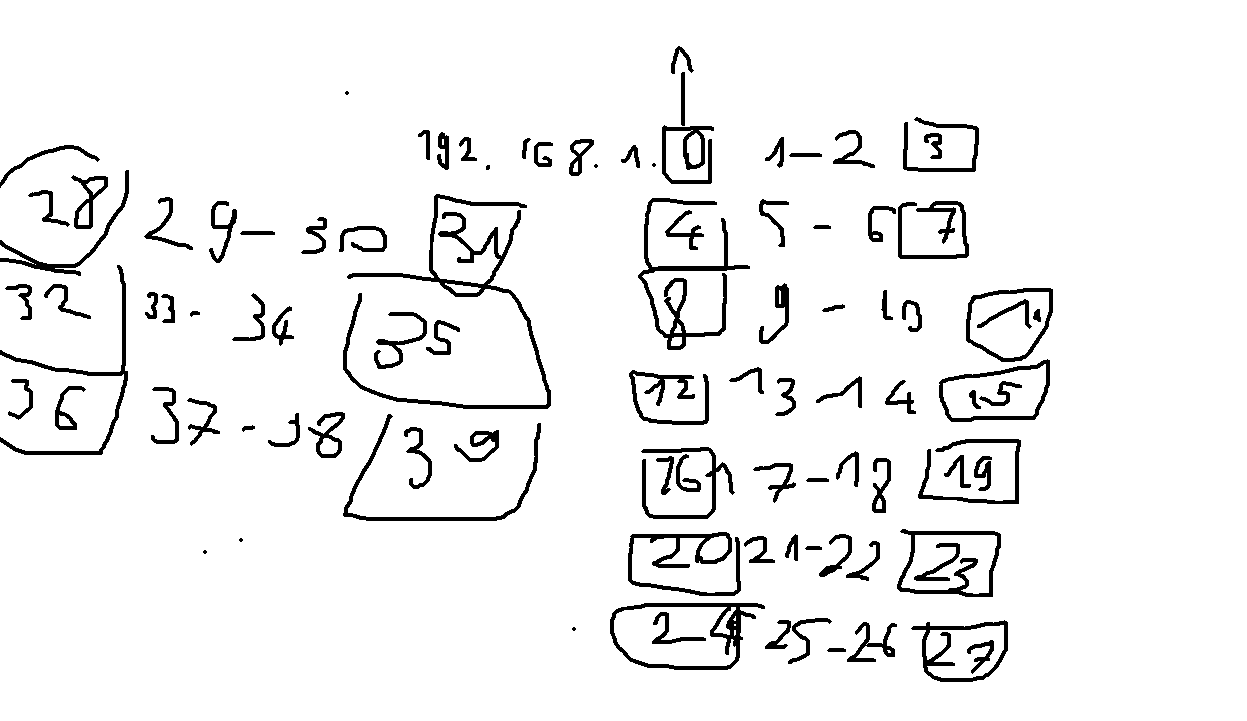 192.168.1.0 1-2 3
4 5-6 7
8 9-10 11
12 13-14 15
16 17-18 19
20 21-22 23
24 25-26 27
28 29-30 31
32 33-34 35
36 37-38 39